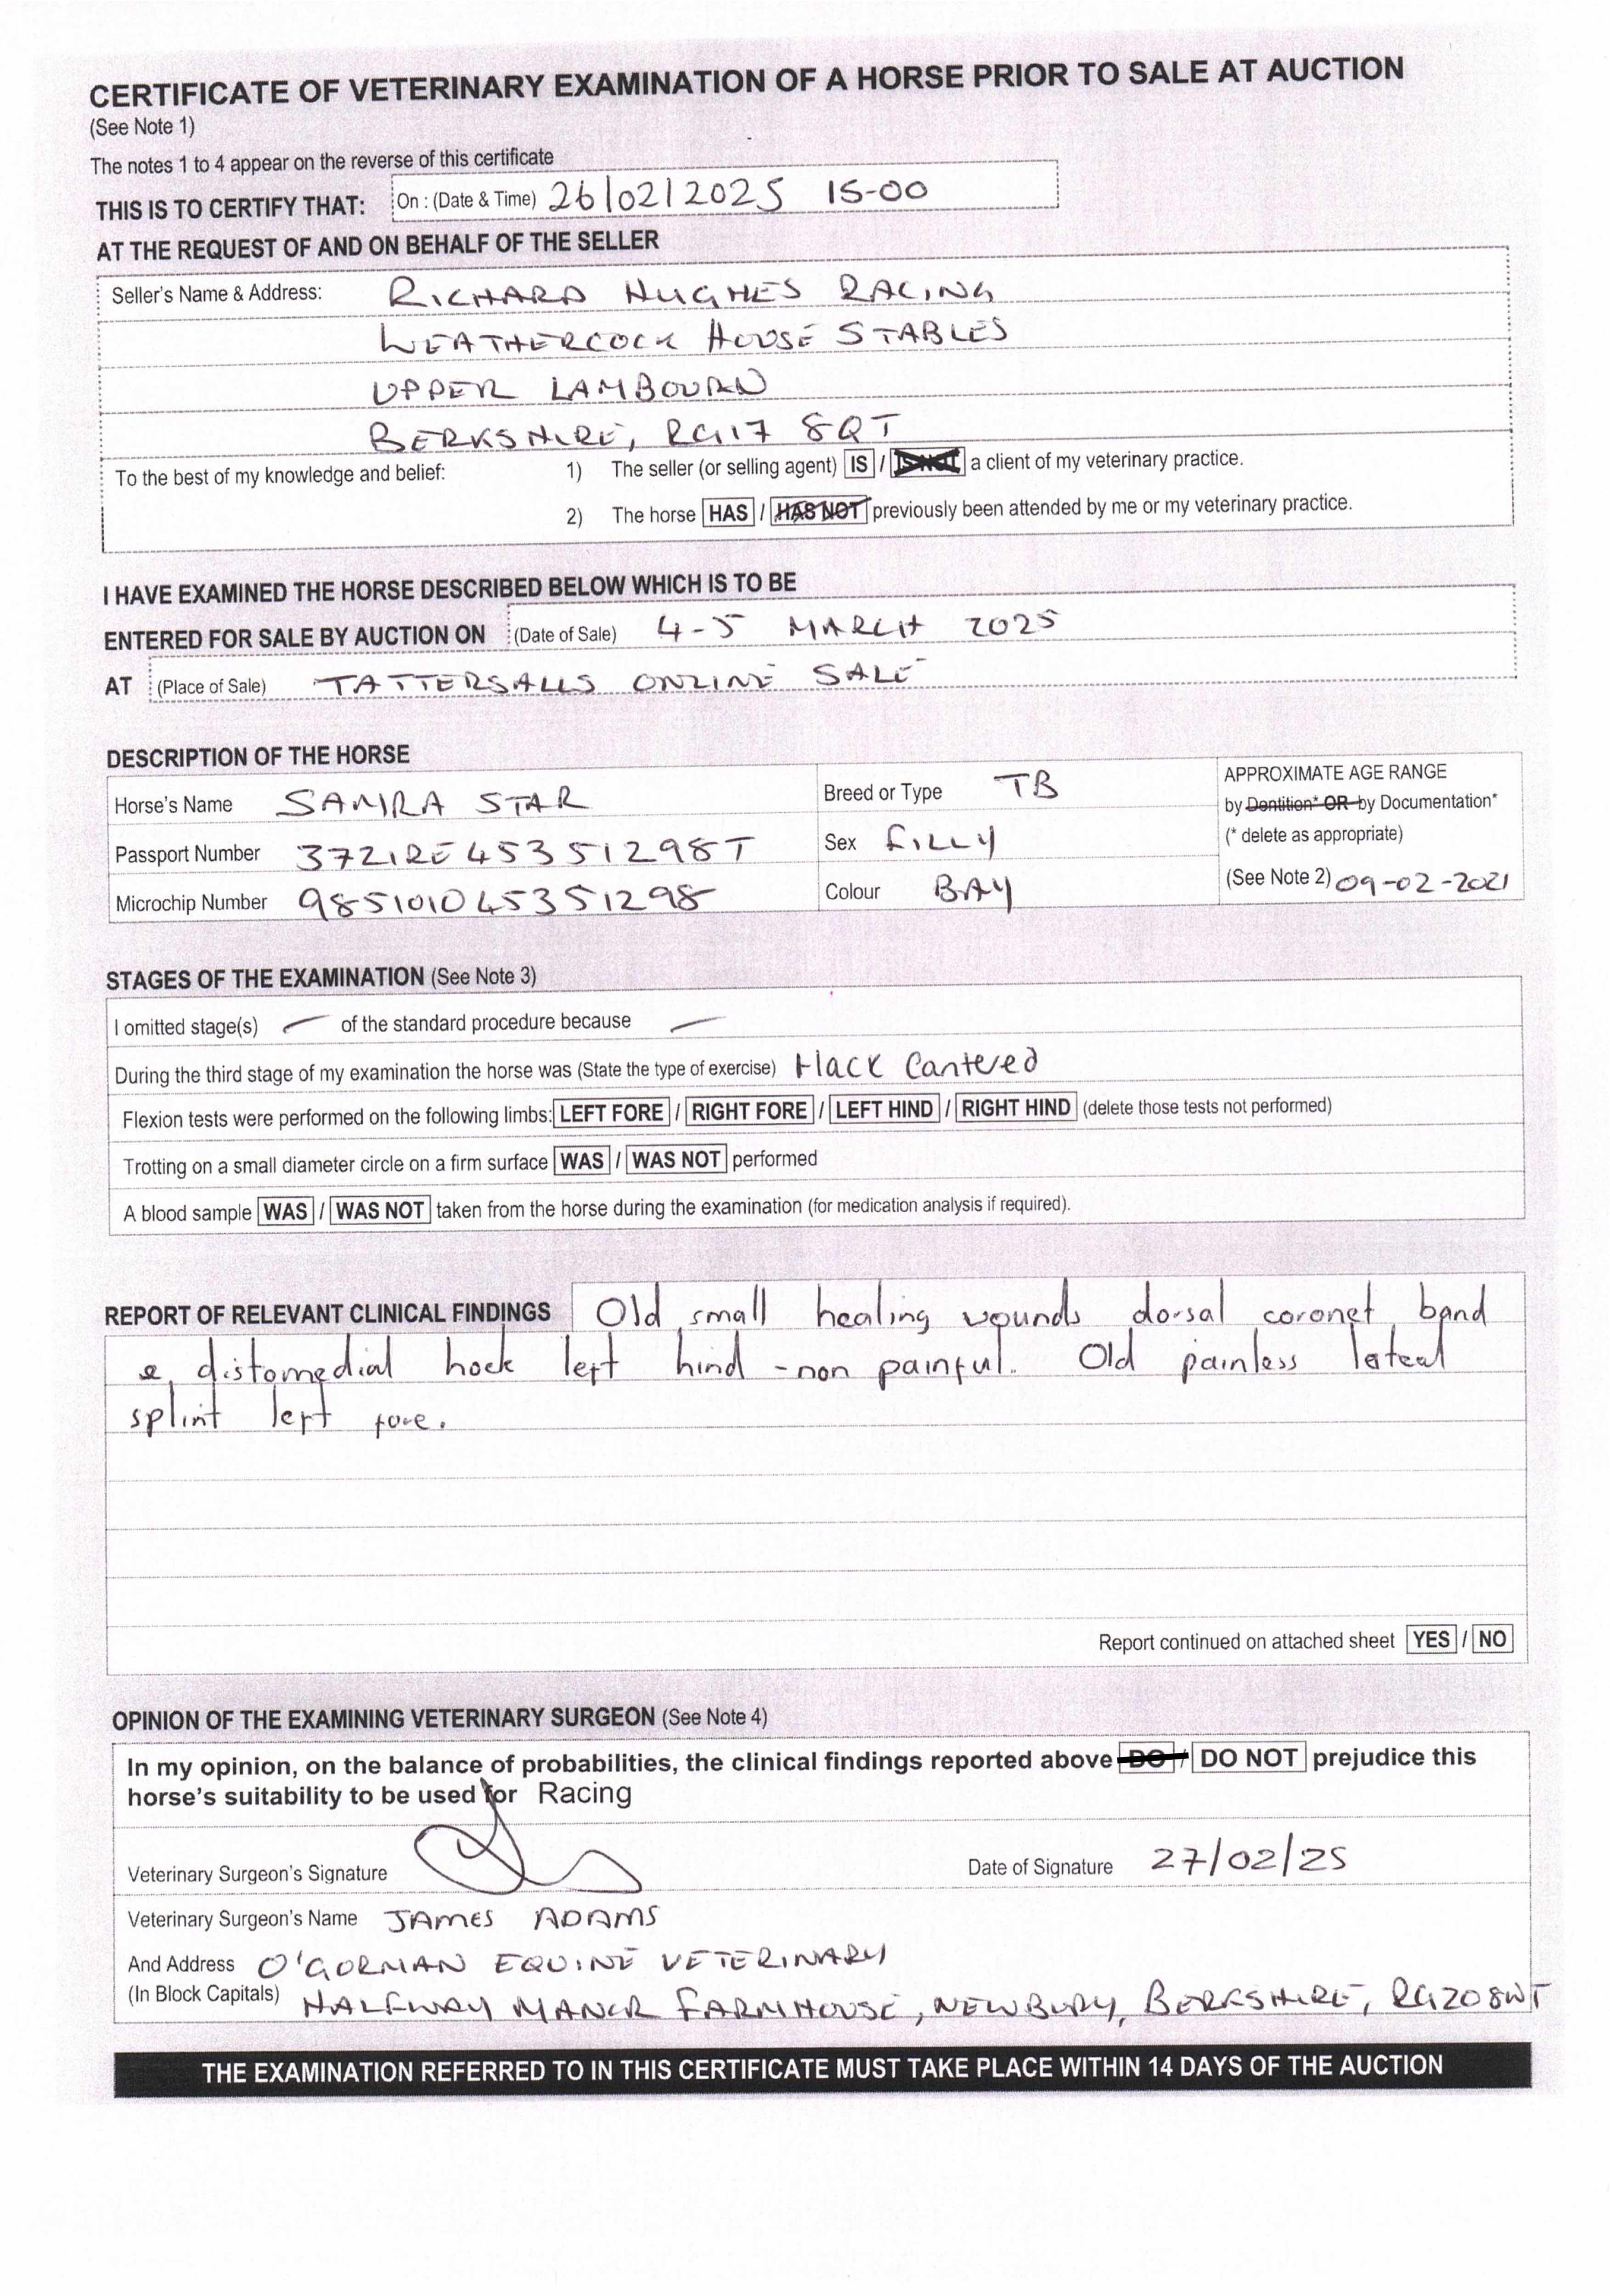 CERTIFICATE OF VETERINARY EXAMINATION OF A HORSE PRIOR TO SALE AT AUCTION
(See Note 1)
The notes 1 to 4 appear on the reverse of this certificate
THIS IS TO CERTIFY THAT: On : (Date & Time) 26/02/2025 15-00
AT THE REQUEST OF AND ON BEHALF OF THE SELLER
Seller's Name & Address: RICHARD HUGHES RACING
WEATHERCOCK HOUSE STABLES
UPPER LAMBOURN
BERKSHIRE, RG17 8QT
To the best of my knowledge and belief: 1) The seller (or selling agent) IS / IS NOT a client of my veterinary practice.
2) The horse HAS / HAS NOT previously been attended by me or my veterinary practice.
I HAVE EXAMINED THE HORSE DESCRIBED BELOW WHICH IS TO BE
ENTERED FOR SALE BY AUCTION ON (Date of Sale) 4-5 MARCH 2025
AT (Place of Sale) TATTERSALLS ONLINE SALE
DESCRIPTION OF THE HORSE
Horse's Name SAMRA STAR
Passport Number 372IRE45351298T
Microchip Number 985101045351298
Breed or Type TB
Sex FILLY
Colour BAY
APPROXIMATE AGE RANGE
by Dentition* OR by Documentation*
(* delete as appropriate)
(See Note 2) 09-02-2021
STAGES OF THE EXAMINATION (See Note 3)
I omitted stage(s) — of the standard procedure because —
During the third stage of my examination the horse was (State the type of exercise) Hack Cantered
Flexion tests were performed on the following limbs: LEFT FORE / RIGHT FORE / LEFT HIND / RIGHT HIND (delete those tests not performed)
Trotting on a small diameter circle on a firm surface WAS / WAS NOT performed
A blood sample WAS / WAS NOT taken from the horse during the examination (for medication analysis if required).
REPORT OF RELEVANT CLINICAL FINDINGS Old small healing wounds dorsal coronet band
& distomedial hock left hind - non painful. Old painless lateal
splint left fore.
Report continued on attached sheet YES / NO
OPINION OF THE EXAMINING VETERINARY SURGEON (See Note 4)
In my opinion, on the balance of probabilities, the clinical findings reported above DO / DO NOT prejudice this
horse's suitability to be used for Racing
Veterinary Surgeon's Signature
Date of Signature 27/02/25
Veterinary Surgeon's Name JAMES ADAMS
And Address O'GORMAN EQUINE VETERINARY
(In Block Capitals) HALFWAY MANOR FARMHOUSE, NEWBURY, BERKSHIRE, RG20 8WT
THE EXAMINATION REFERRED TO IN THIS CERTIFICATE MUST TAKE PLACE WITHIN 14 DAYS OF THE AUCTION